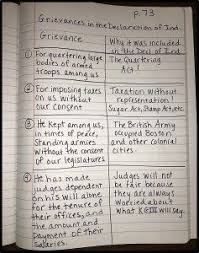 p.73
Grievances in the Declaration of Ind.
Grievance
Why it was included
in the Decl of Ind.
① For quartering large
bodies of armed
troops among us
The Quartering
Act
② For imposing taxes
on us without
our consent
Taxation without
representation!
Sugar Act, Stamp Act, etc.
③ He Kept among us,
in times of peace,
Standing armies
without the consent
of our legislatures
The British Army
occupied Boston
and other colonial
cities.
④ He has made
judges dependent
on his will alone
for the tenure of
their offices, and
the amount and
payment of their
salaries.
Judges will not
be fair because
they are always
worried about
what will say.